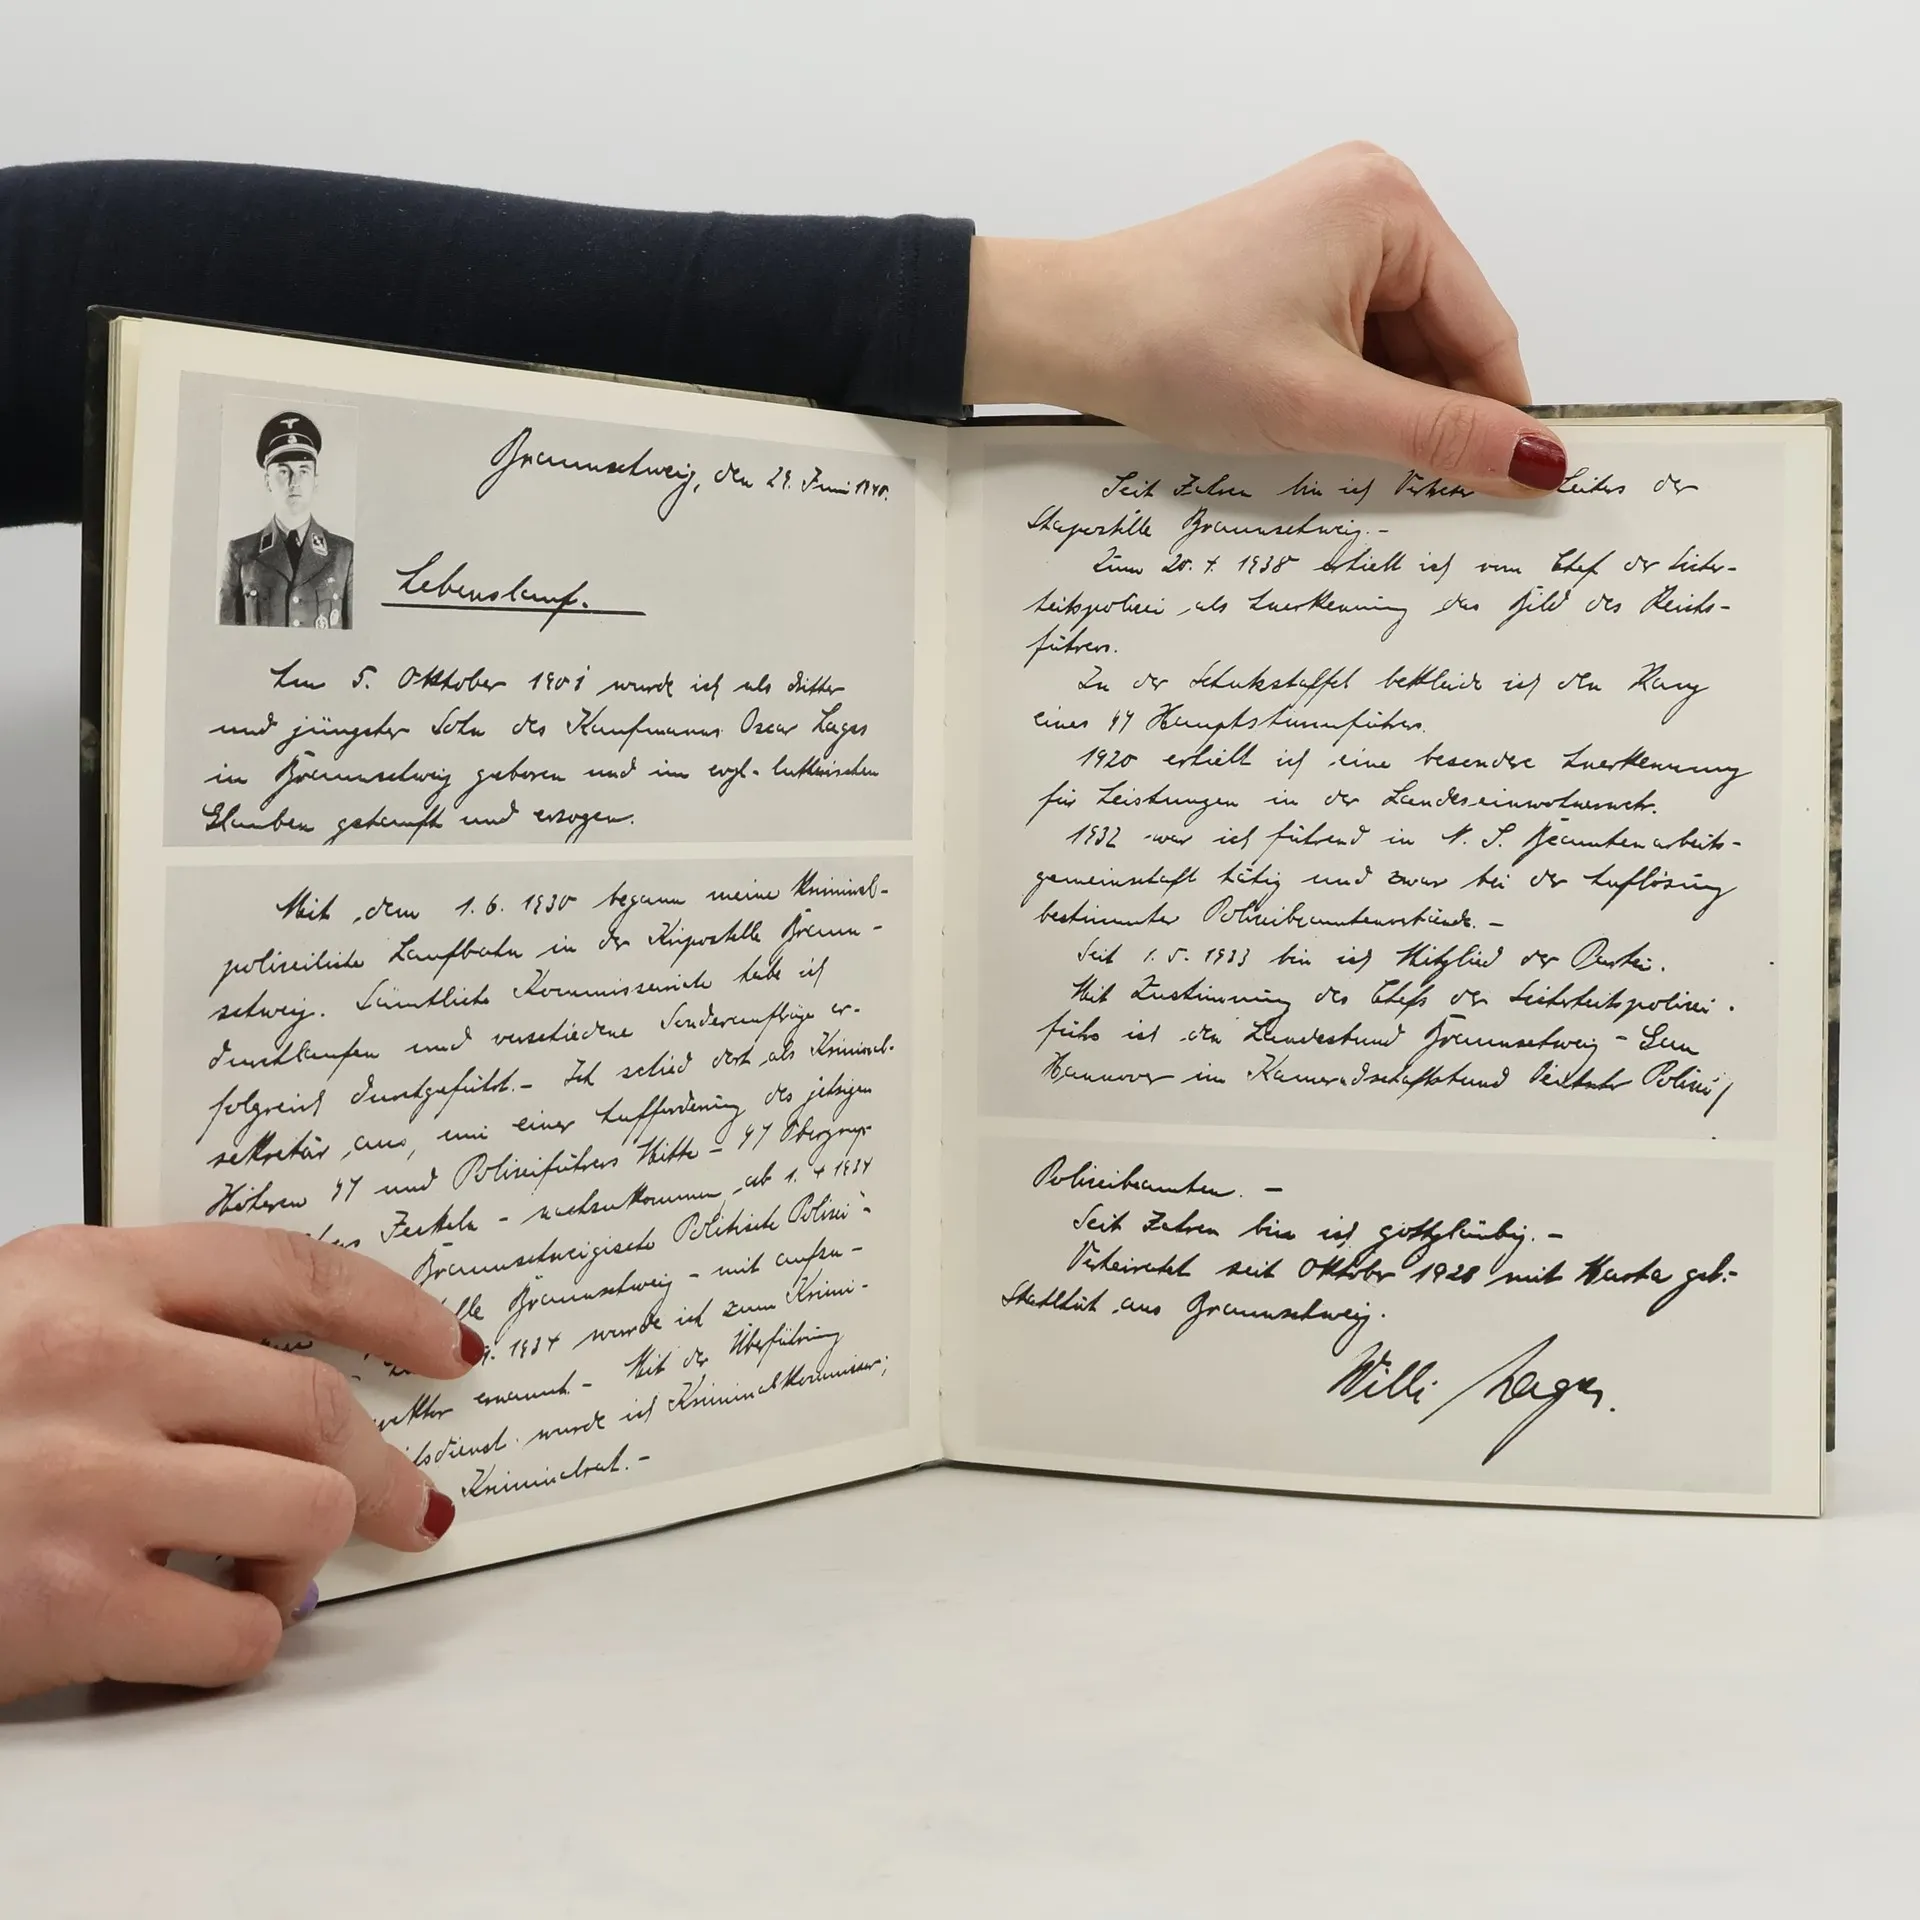 Braunschweig, den 29. Juni 1940.
Lebenslauf.
Am 5. Oktober 1901 wurde ich als dritter
und jüngster Sohn des Kaufmanns Oscar Lages
in Braunschweig geboren und im evgl.-lutherischen
Glauben getauft und erzogen.
Mit dem 1.6.1930 begann meine kriminal-
polizeiliche Laufbahn in der Kripostelle Braun-
schweig. Sämtliche Kommissariate habe ich
durchlaufen und verschiedene Sonderaufträge er-
folgreich durchgeführt.- Ich schied dort als Kriminal-
sekretär aus, um einer Aufforderung des jetzigen
Höheren SS und Polizeiführers Mitte - SS Obergrup-
Jeckeln - nachzukommen, ab 1.4.1934
Braunschweigische Politische Polizei -
lle Braunschweig - mit aufzu-
9. 1934 wurde ich zum Krimi-
ernannt.- Mit der Überführung
dienst wurde ich Kriminalkommissar,
Kriminalrat.-
Seit Jahren bin ich Vertreter Leiters der
Stapostelle Braunschweig.-
Zum 20.4.1938 erhielt ich vom Chef der Sicher-
heitspolizei als Anerkennung das Bild des Reichs-
führers.
In der Schutzstaffel bekleide ich den Rang
eines SS Hauptsturmführers.
1920 erhielt ich eine besondere Anerkennung
für Leistungen in der Landeseinwohnerwehr.
1932 war ich führend in N.S. Beamtenarbeits-
gemeinschaft tätig und zwar bei der Auflösung
bestimmter Polizeibeamtenverbände.-
Seit 1.5.1933 bin ich Mitglied der Partei.
Mit Zustimmung des Chefs der Sicherheitspolizei
führe ich den Landesbund Braunschweig - Gau
Hannover im Kameradschaftsbund Deutscher Polizei/
Polizeibeamten.-
Seit Jahren bin ich gottgläubig.-
Verheiratet seit Oktober 1928 mit geb.
aus Braunschweig.
Willi Lages.